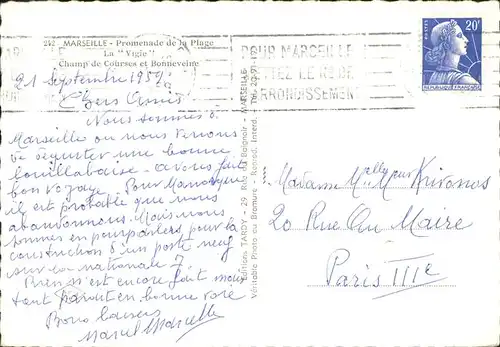 212 MARSEILLE - Promenade de la Plage
La "Vigie"
Champ de Courses et Bonneveine
21 Septembre 1959
Chers Amis
Nous sommes à
Marseille ou nous venons
de déguster une bonne
bouillabaisse avons fait
bon voyage. Pour Manosque
il est probable que nous
abandonnons. Mais nous
sommes en pourparlers pour la
construction d'un poste neuf
sur la nationale 7.
Rien n'est encore fait mais
tout parait en bonne voie
Bons baisers
Marcel Marcelle
Editions TARDY - 29 Rue du Baignoir - MARSEILLE
Véritable Photo au Bromure - Reprod. Interd.
POUR MARSEILLE
LE N° DE
ARRONDISSEMENT
POSTES
20F
REPUBLIQUE FRANÇAISE
Madame Mr Melle
20 Rue Au Maire
Paris IIIe